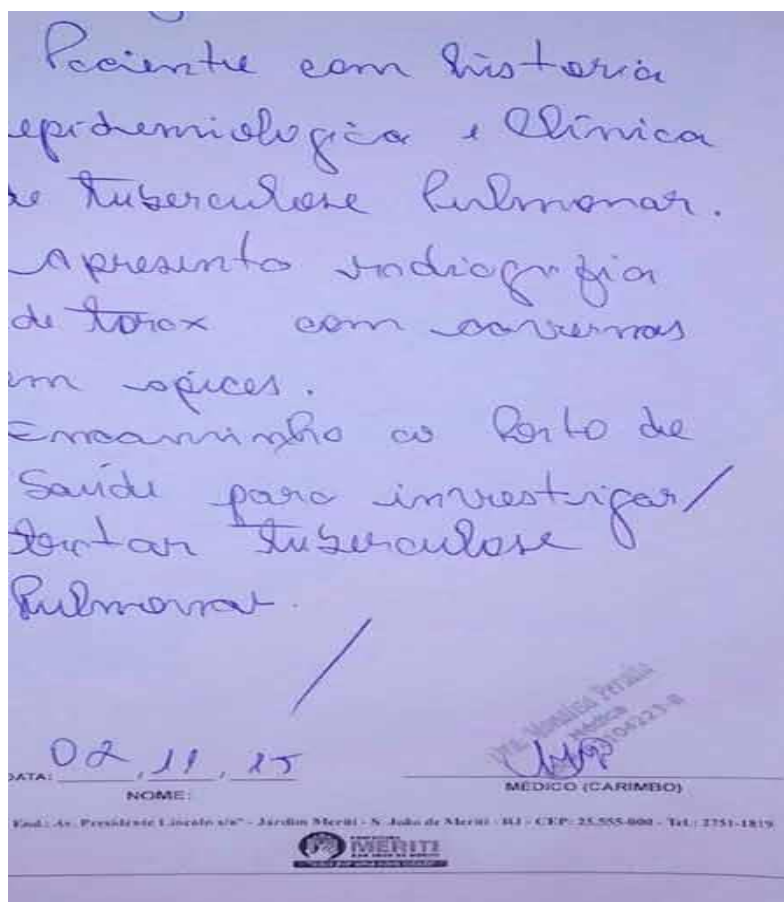 Paciente com historia
epidemiologica e Clínica
de tuberculose Pulmonar.
Apresento radiografia
de torax com cavernas
em apices.
Encaminho ao Posto de
Saúde para investigar/
tratar tuberculose
Pulmonar.
DATA: 02, 11, 25
NOME:
Dra.
Médica
MÉDICO (CARIMBO)
End.: Av. Presidente Lincoln s/nº - Jardim Meriti - S. João de Meriti - RJ - CEP: 25.555-000 - Tel.: 2751-1819
MERITI